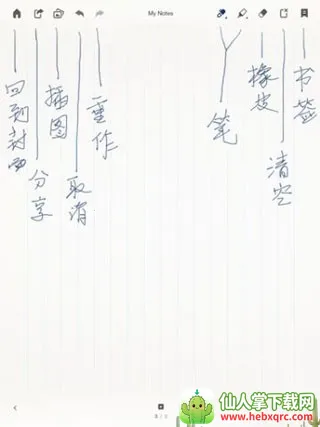 My Notes
回到封面
分享
插图
取消
重作
笔
橡皮
清空
书签
仙人掌下载网
www.hebxqrc.com